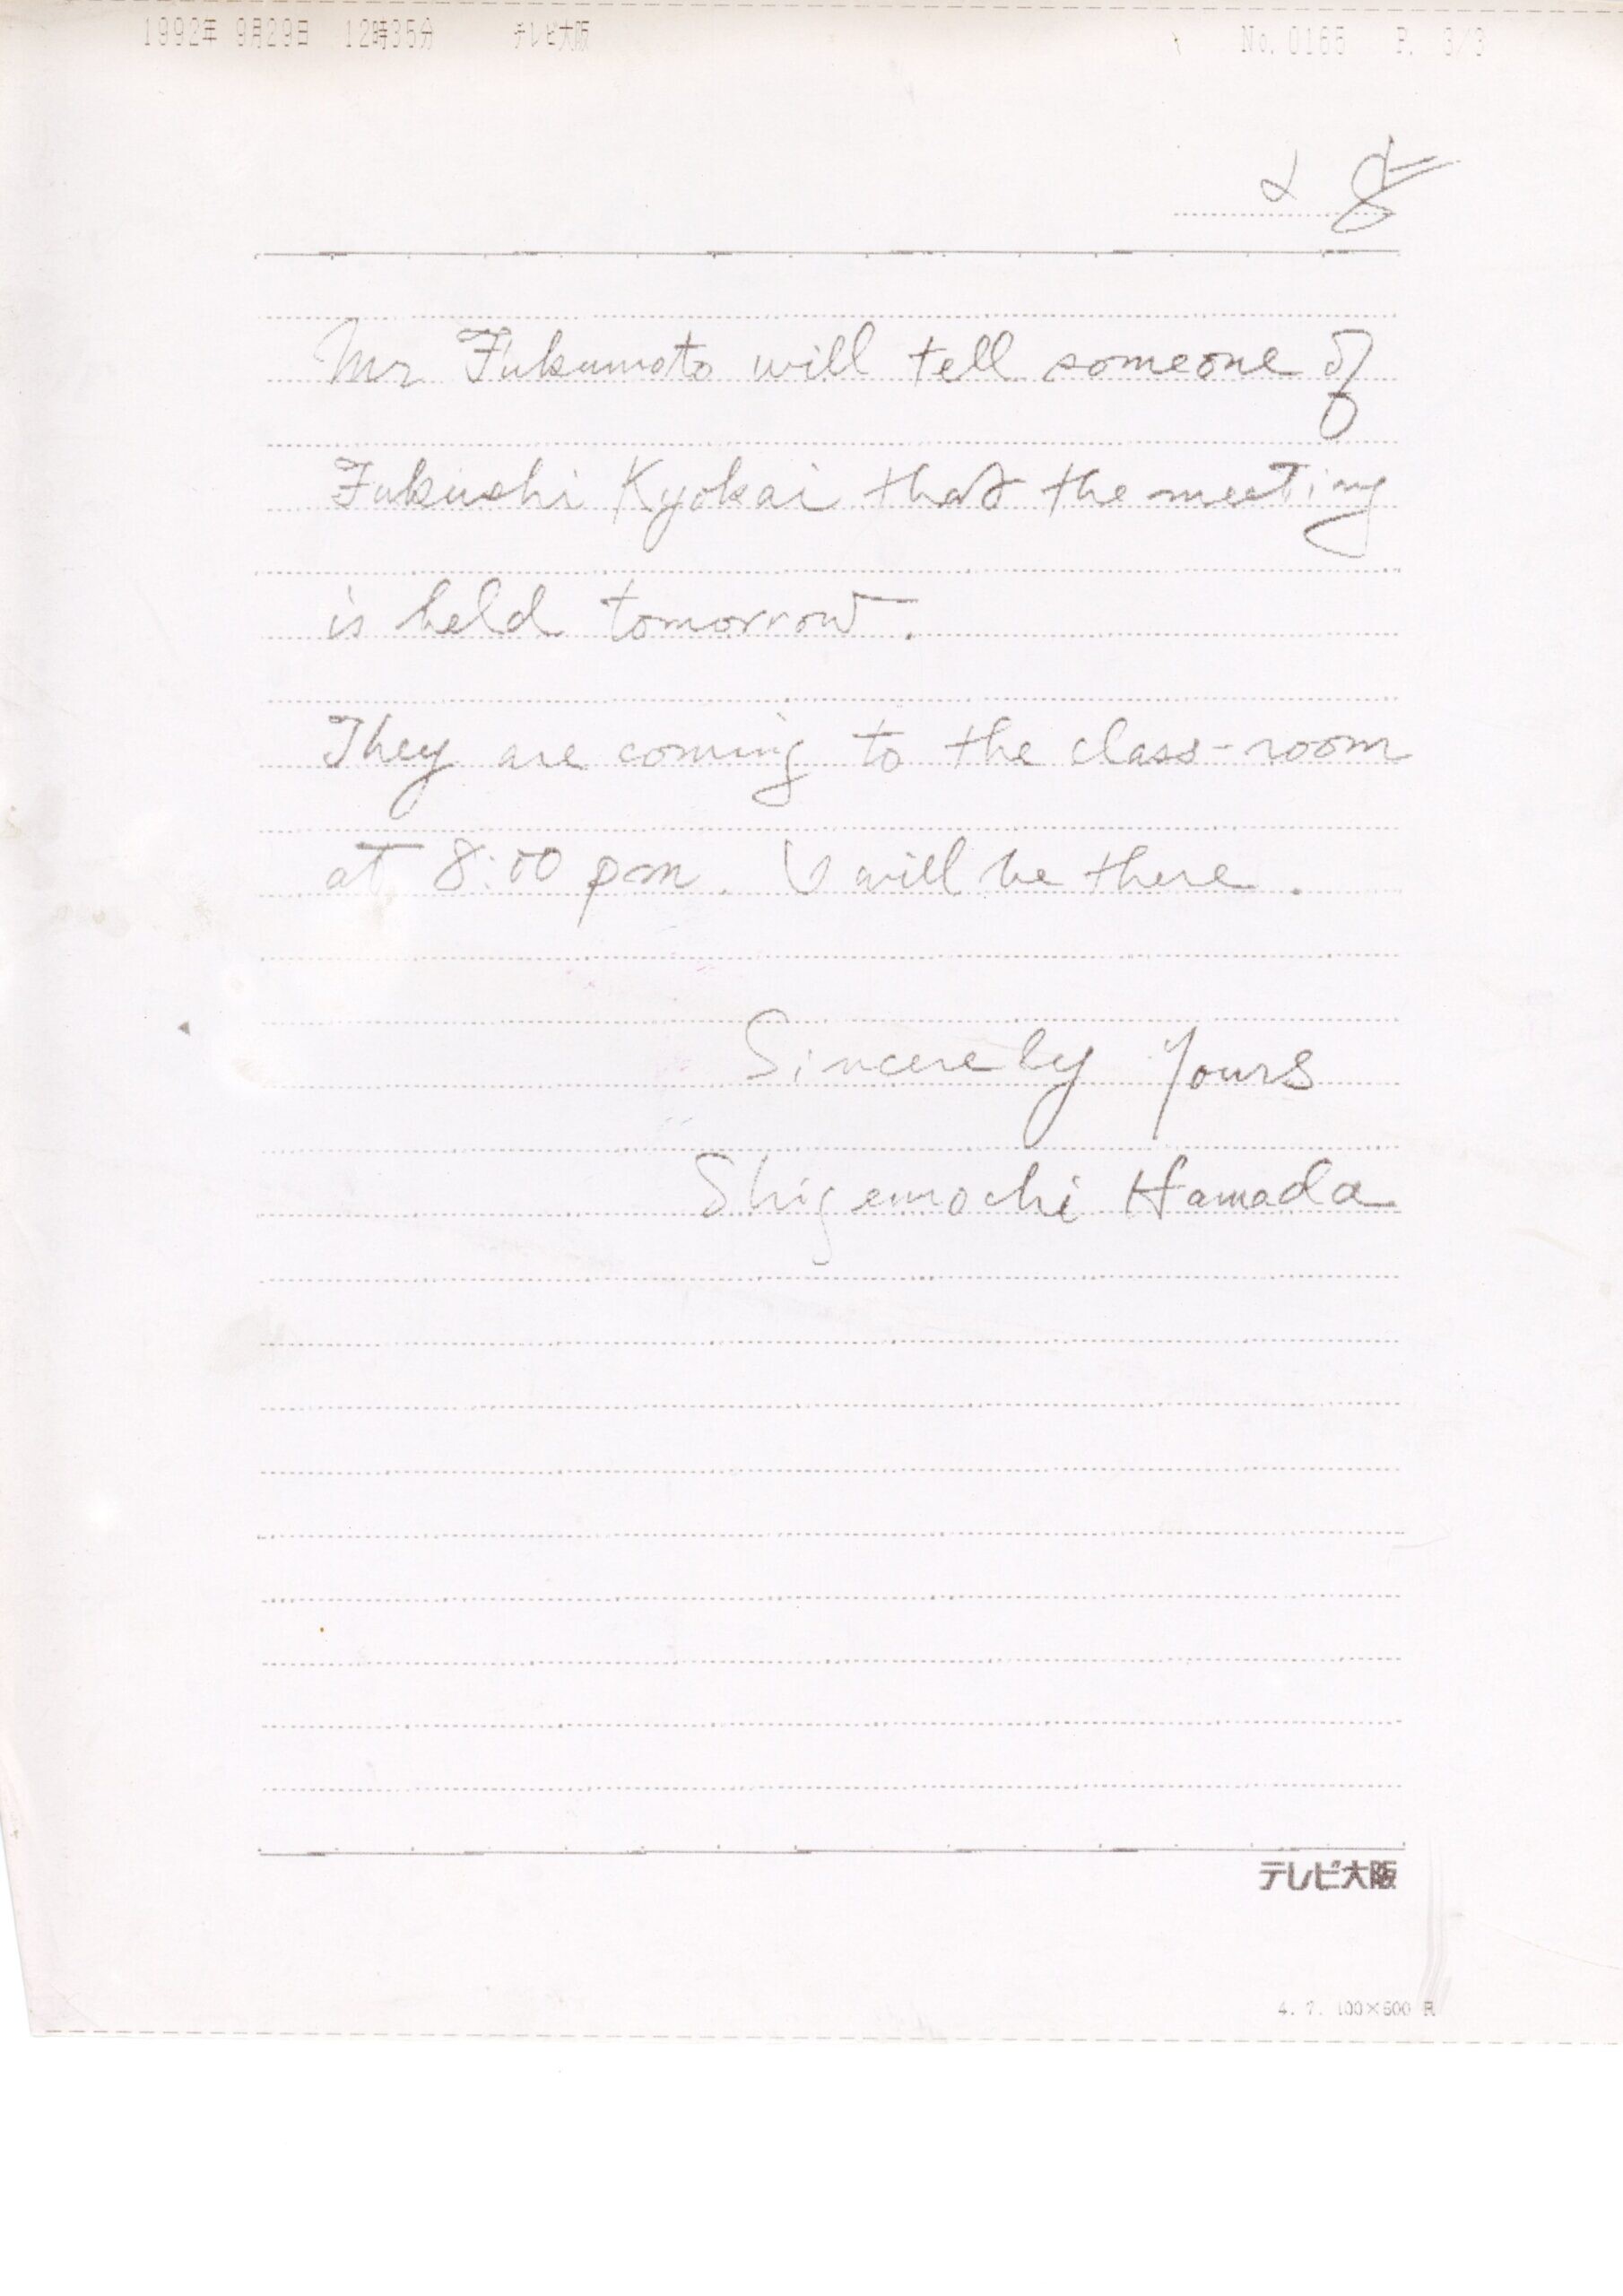 1992年 9月29日 12時35分 テレビ大阪 No.0165 P. 3/3
Mr Fukumoto will tell someone of
Fukushi Kyokai that the meeting
is held tomorrow.
They are coming to the class-room
at 8:00 pm. I will be there.
Sincerely Yours
Shigemochi Hamada
テレビ大阪
4. 7. 100×600 R